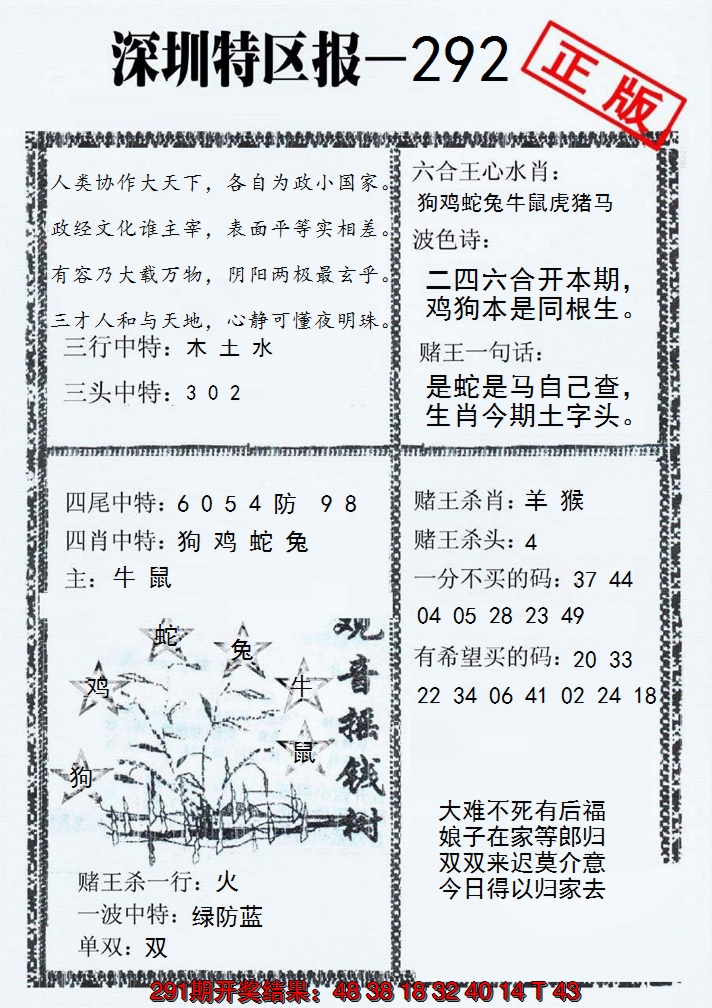 深圳特区报—292
正版
人类协作大天下，各自为政小国家。
政经文化谁主宰，表面平等实相差。
有容乃大载万物，阴阳两极最玄乎。
三才人和与天地，心静可懂夜明珠。
三行中特：木 土 水
三头中特：3 0 2
六合王心水肖：
狗鸡蛇兔牛鼠虎猪马
波色诗：
二四六合开本期，
鸡狗本是同根生。
赌王一句话：
是蛇是马自己查，
生肖今期土字头。
四尾中特：6 0 5 4 防 9 8
四肖中特：狗 鸡 蛇 兔
主：牛 鼠
赌王杀肖：羊 猴
赌王杀头：4
一分不买的码：37 44
04 05 28 23 49
有希望买的码：20 33
22 34 06 41 02 24 18
蛇
兔
鸡
牛
鼠
狗
观音摇钱树
大难不死有后福
娘子在家等郎归
双双来迟莫介意
今日得以归家去
赌王杀一行：火
一波中特：绿防蓝
单双：双
291期开奖结果：48 38 18 32 40 14 T 43